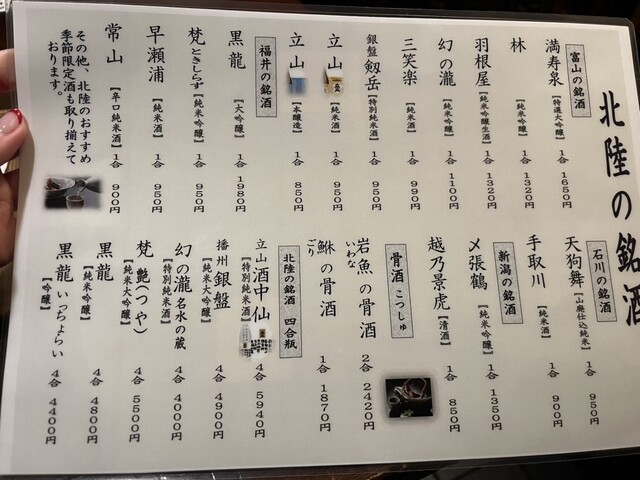 北陸の銘酒
富山の銘酒
満寿泉【特選大吟醸】1合 1650円
林【純米吟醸】1合 1320円
羽根屋【純米吟醸生酒】1合 1320円
幻の瀧【純米吟醸】1合 1100円
三笑楽【純米酒】1合 990円
銀盤 剱岳【特別純米酒】1合 950円
立山【純米酒】1合 950円
立山【本醸造】1合 850円
福井の銘酒
黒龍【大吟醸】1合 1980円
梵 ときしらず【純米吟醸】1合 950円
早瀬浦【純米酒】1合 950円
常山【辛口純米酒】1合 900円
その他、北陸のおすすめ
季節限定酒も取り揃えて
おります。
石川の銘酒
天狗舞【山廃仕込純米】1合 950円
手取川【純米酒】1合 900円
新潟の銘酒
〆張鶴【純米吟醸】1合 1350円
越乃景虎【清酒】1合 850円
骨酒 こつしゅ
岩魚の骨酒 いわな 2合 2420円
鮴の骨酒 ごり 1合 1870円
北陸の銘酒 四合瓶
立山 酒中仙【特別純米酒】4合 5940円
播州 銀盤【純米大吟醸】4合 4900円
幻の瀧 名水の蔵【特別純米酒】4合 4000円
梵 艶(つや)【純米大吟醸】4合 5500円
黒龍【純米吟醸】4合 4800円
黒龍 いっちょらい【吟醸】4合 4400円